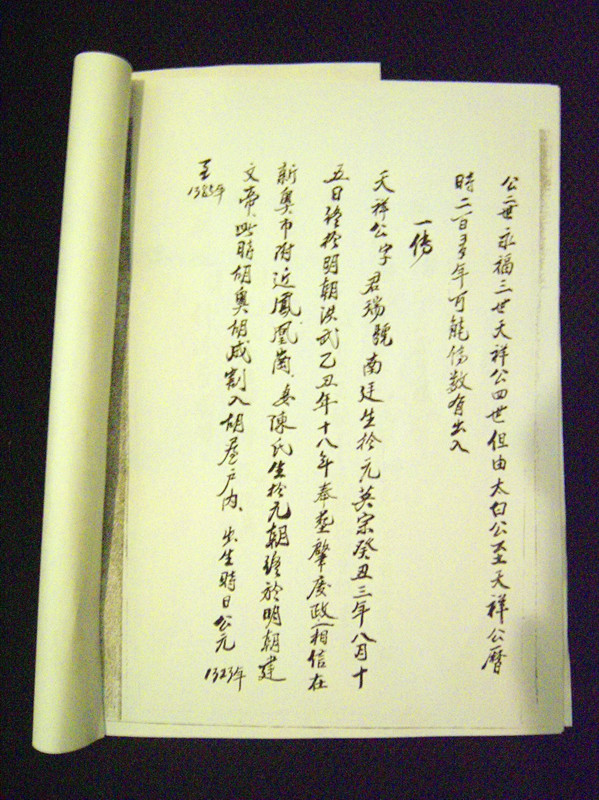 公二世永福三世天祥公四世但由太白公至天祥公曆
時二百多年可能傳數有出入
一傳
天祥公字君瑞號南廷生於元英宗癸丑三年八月十
五日終於明朝洪武乙丑年十八年奉葬肇慶政相信在
新奧市附近鳳凰崗、妾陳氏生於元朝終於明朝建
文帝、此時胡奧胡成割入胡 户內、出生時日公元1323年
至1385年